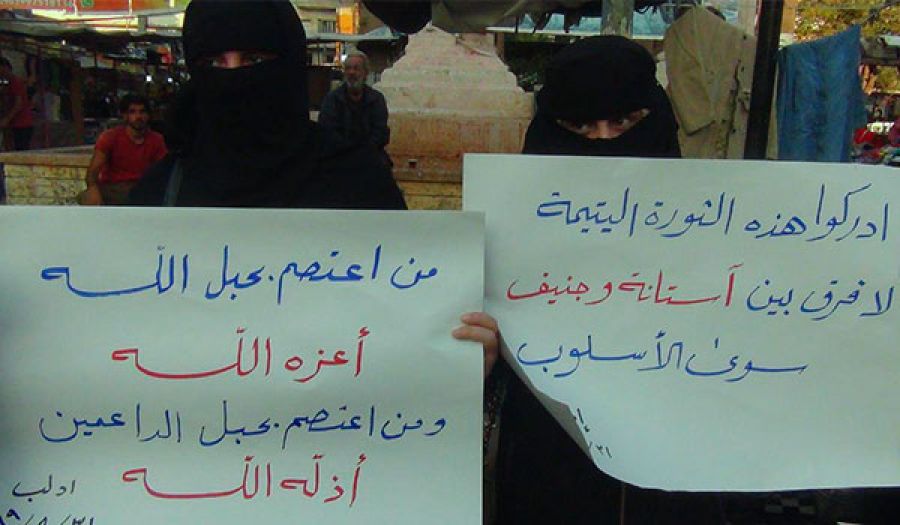 من اعتصم بحبل اللّه
أعزه اللّه
ومن اعتصم بحبل الداعمين
أذلّه اللّه
ادلب
ادركوا هذه الثورة اليتيمة
لا فرق بين آستانة وجنيف
سوى الأسلوب